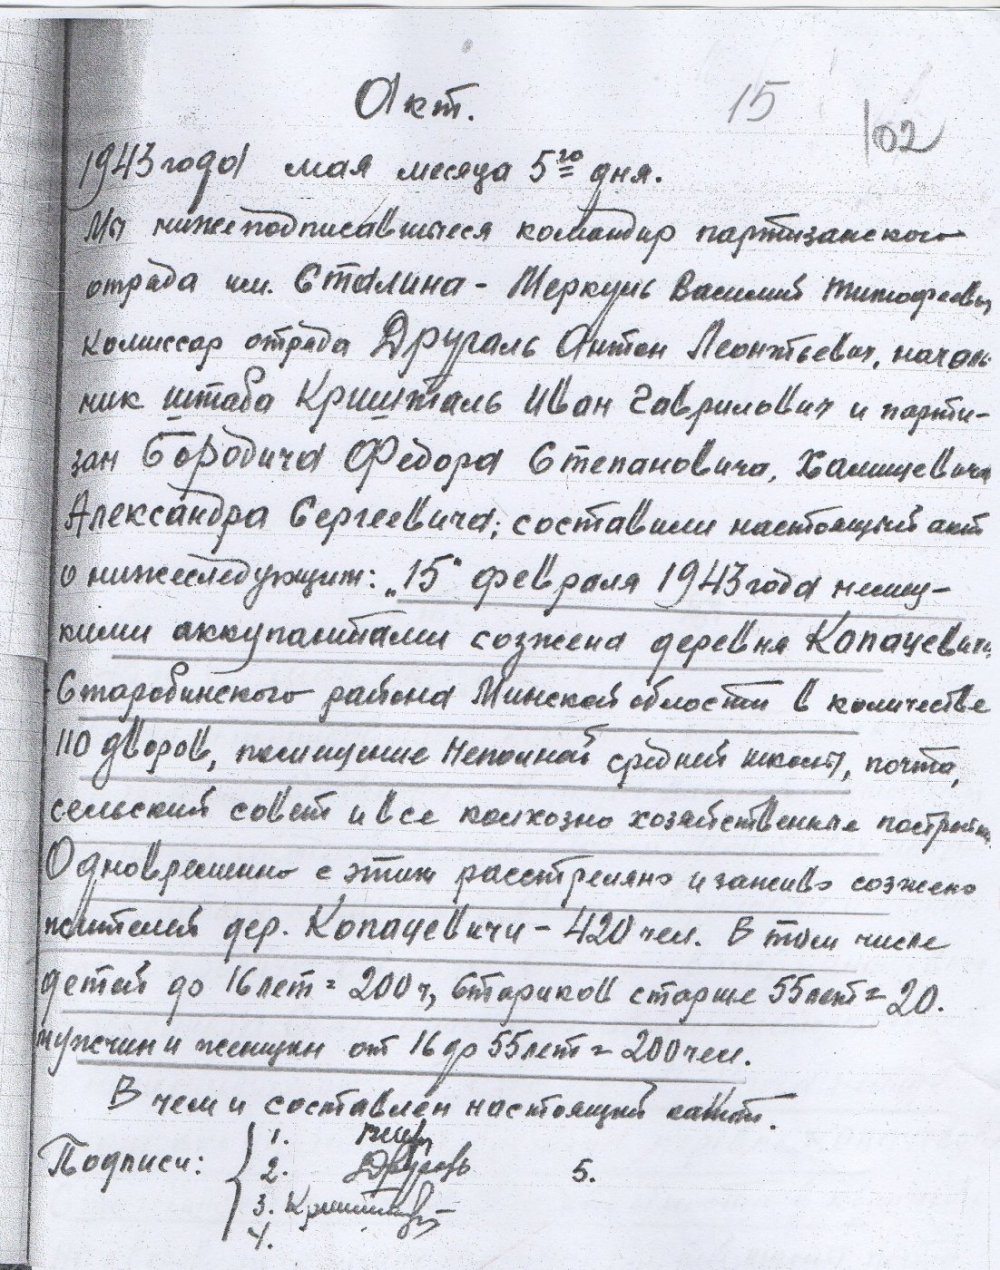 Акт.
15
102
1943 года мая месяца 5го дня.
Мы нижеподписавшиеся командир партизанского
отряда им. Сталина - Меркуль Василий Тимофеевич
комиссар отряда Другаль Антон Леонтьевич, началь
ник штаба Кришталь Иван Гаврилович и парти-
зан Бородича Фёдора Степановича, Халищевича
Александра Сергеевича; составили настоящий акт
о нижеследующим: „15" февраля 1943 года немец-
кими аккупантами созжена деревня Копацевичи
Старобинского района Минской области в количестве
110 дворов, помищение Неполной средней школы, почта,
сельский совет и все колхозно хозяйственные постройки
Одновремино с этим расстреляно и заживо созжено
жителей дер. Копацевичи - 420 чел. В том числе
детей до 16 лет = 200 ч, Стариков старше 55 лет = 20.
мужчин и женщин от 16 до 55 лет = 200 чел.
В чем и составлен настоящий акт.
Подписи:
1.
2. Другаль
5.
3. Кришталь
4.